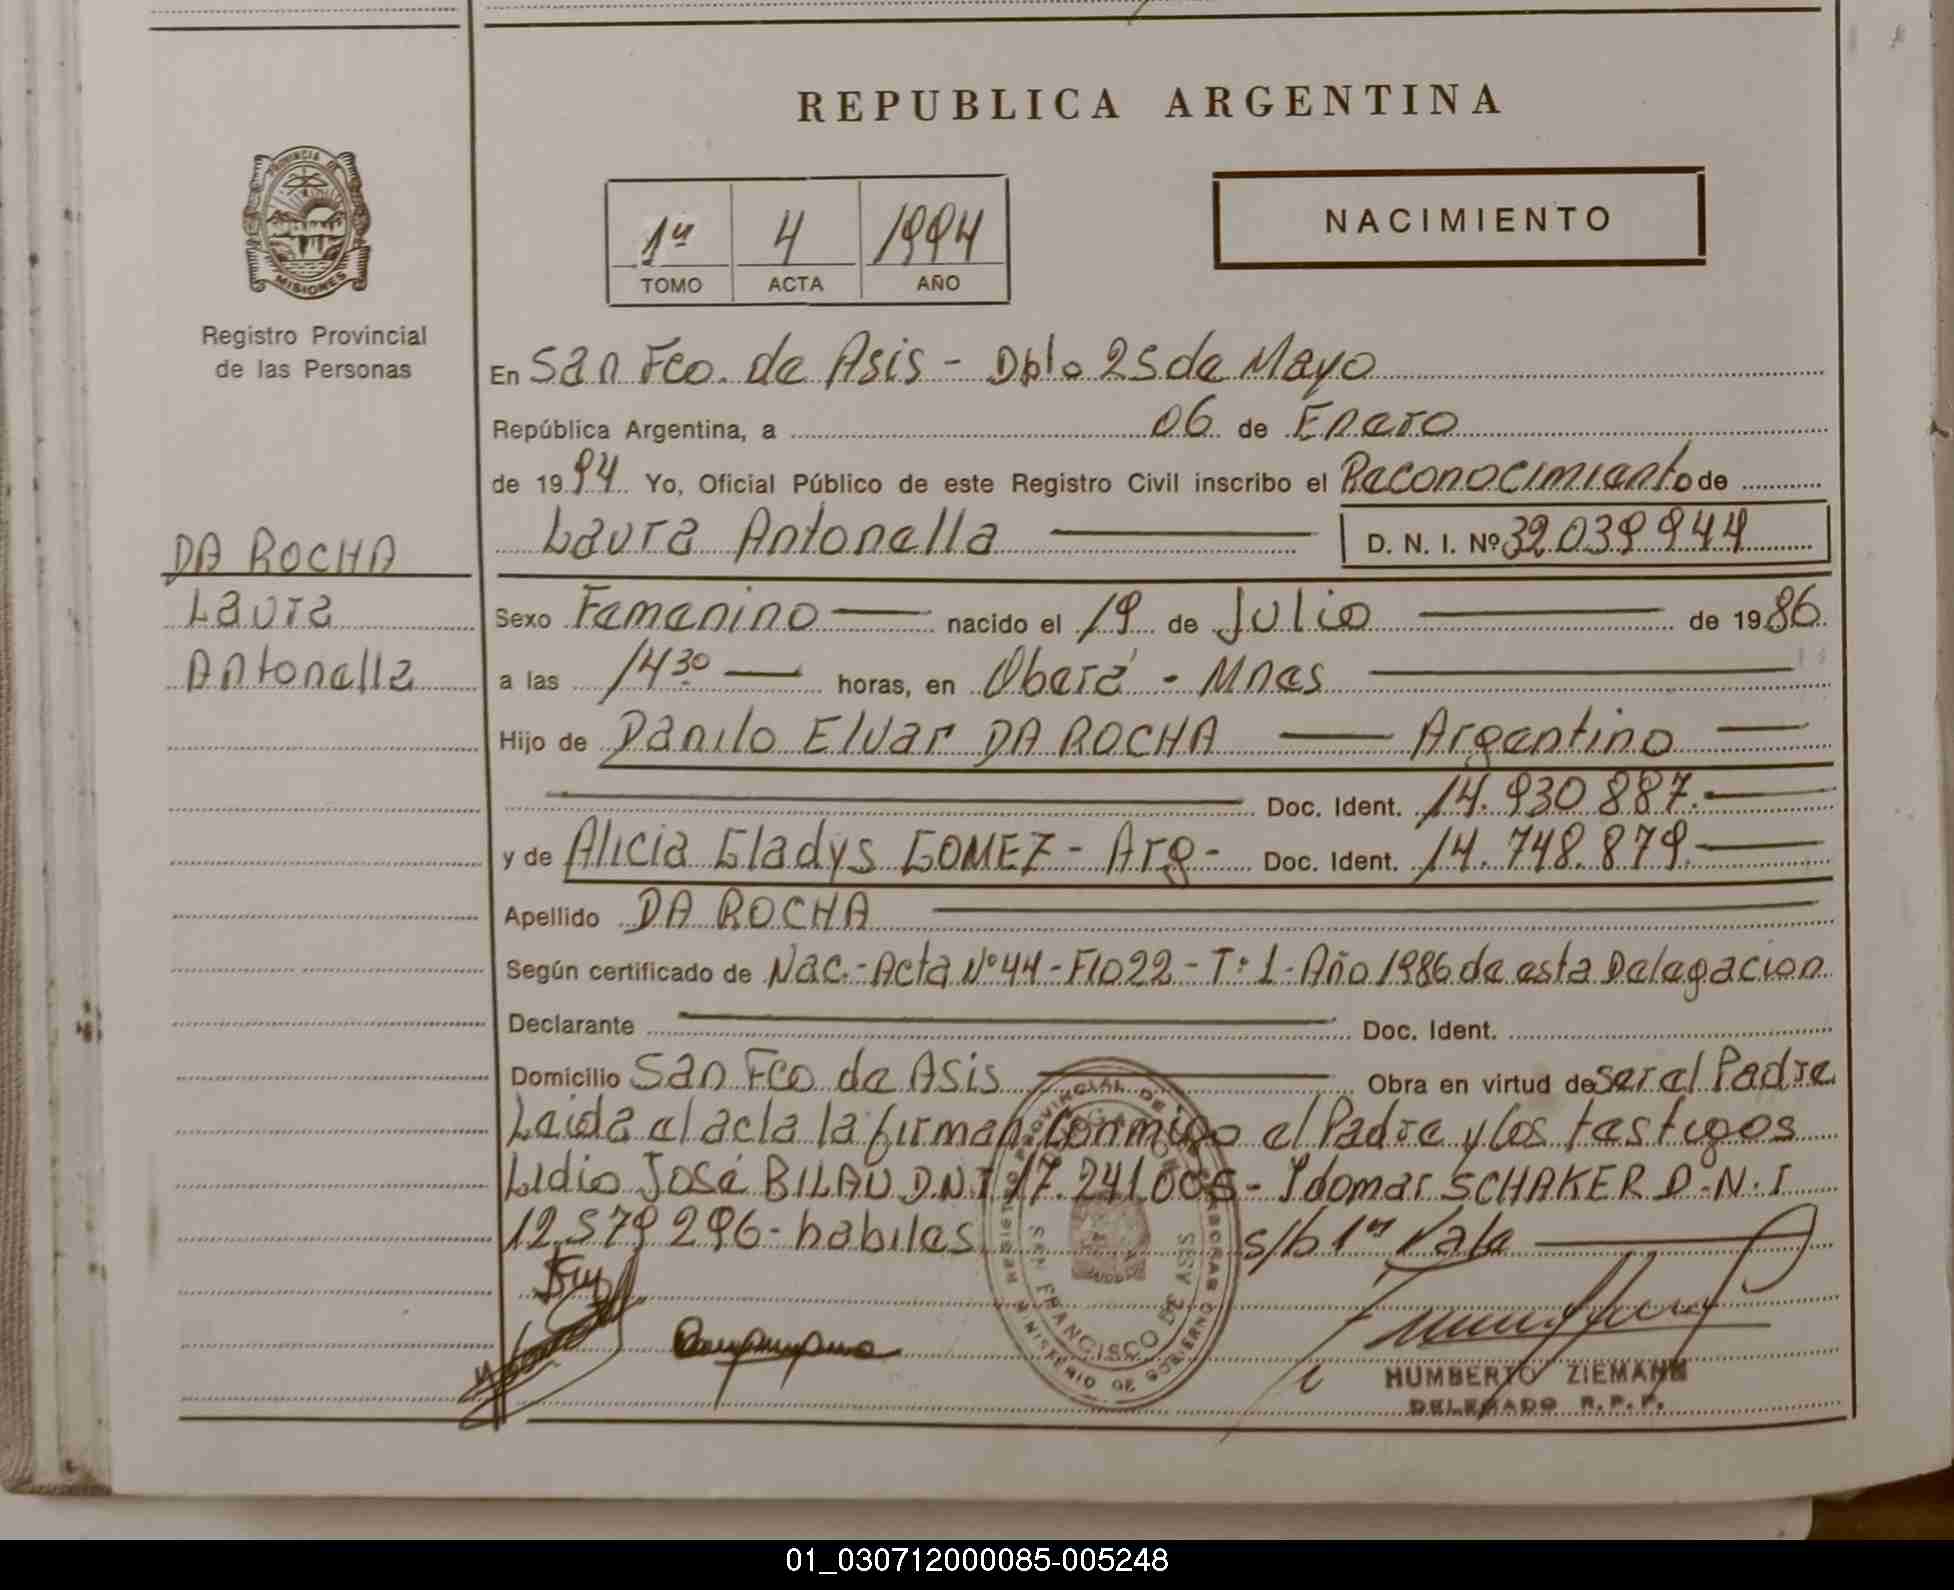 REPUBLICA ARGENTINA
PROVINCIA DE
MISIONES
Registro Provincial
de las Personas
1º 4 1994
TOMO ACTA AÑO
NACIMIENTO
En San Fco. de Asis - Dpto 25 de Mayo
República Argentina, a 06 de Enero
de 1994 Yo, Oficial Público de este Registro Civil inscribo el Reconocimiento de
Laura Antonella D. N. I. Nº 32.039.944
DA ROCHA
Laura
Antonella
Sexo Femenino nacido el 19 de Julio de 1986
a las 14 30 horas, en Oberá - Mnes
Hijo de Danilo Elvar DA ROCHA Argentino
Doc. Ident. 14.930.887.
y de Alicia Gladys GOMEZ - Arg - Doc. Ident. 14.748.879.
Apellido DA ROCHA
Según certificado de Nac.- Acta Nº 44 - Fio 22 - Tº 1 - Año 1986 de esta Delegacion
Declarante Doc. Ident.
Domicilio San Fco de Asis Obra en virtud de ser el Padre
Leida el acta la firman conmigo el Padre y los testigos
Lidio José BILAU D.N.I 17.241.006 - Idomar SCHAKER D.N.I
12.579.296 - habiles s/b 1º Vale
SAN FRANCISCO DE ASIS
MINISTERIO DE GOBIERNO
HUMBERTO ZIEMANN
DELEGADO R.P.P.
01_030712000085-005248